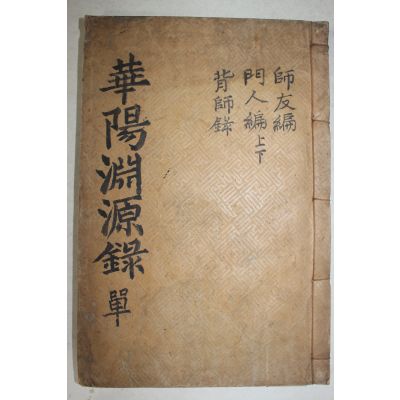 華陽淵源錄 單
師友編
門人編 上下
背師錄